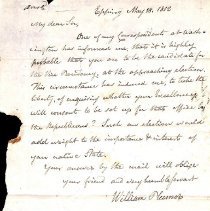 Epping May 18. 1812
My dear Sir,
One of my Correspondents at Wash-
ington has informed me, that it is highly
probable that you are to be the candidate for
the Vice Presidency, at the approaching election.
This circumstance has induced me, to take the
liberty, of enquiring whether your Excellency
will consent to be set up for that office by
the Republicans? Such an election would
add weight to the importance & interest of
your native State.
Your answer by the mail will oblige
your friend and very humble servant
William Plumer